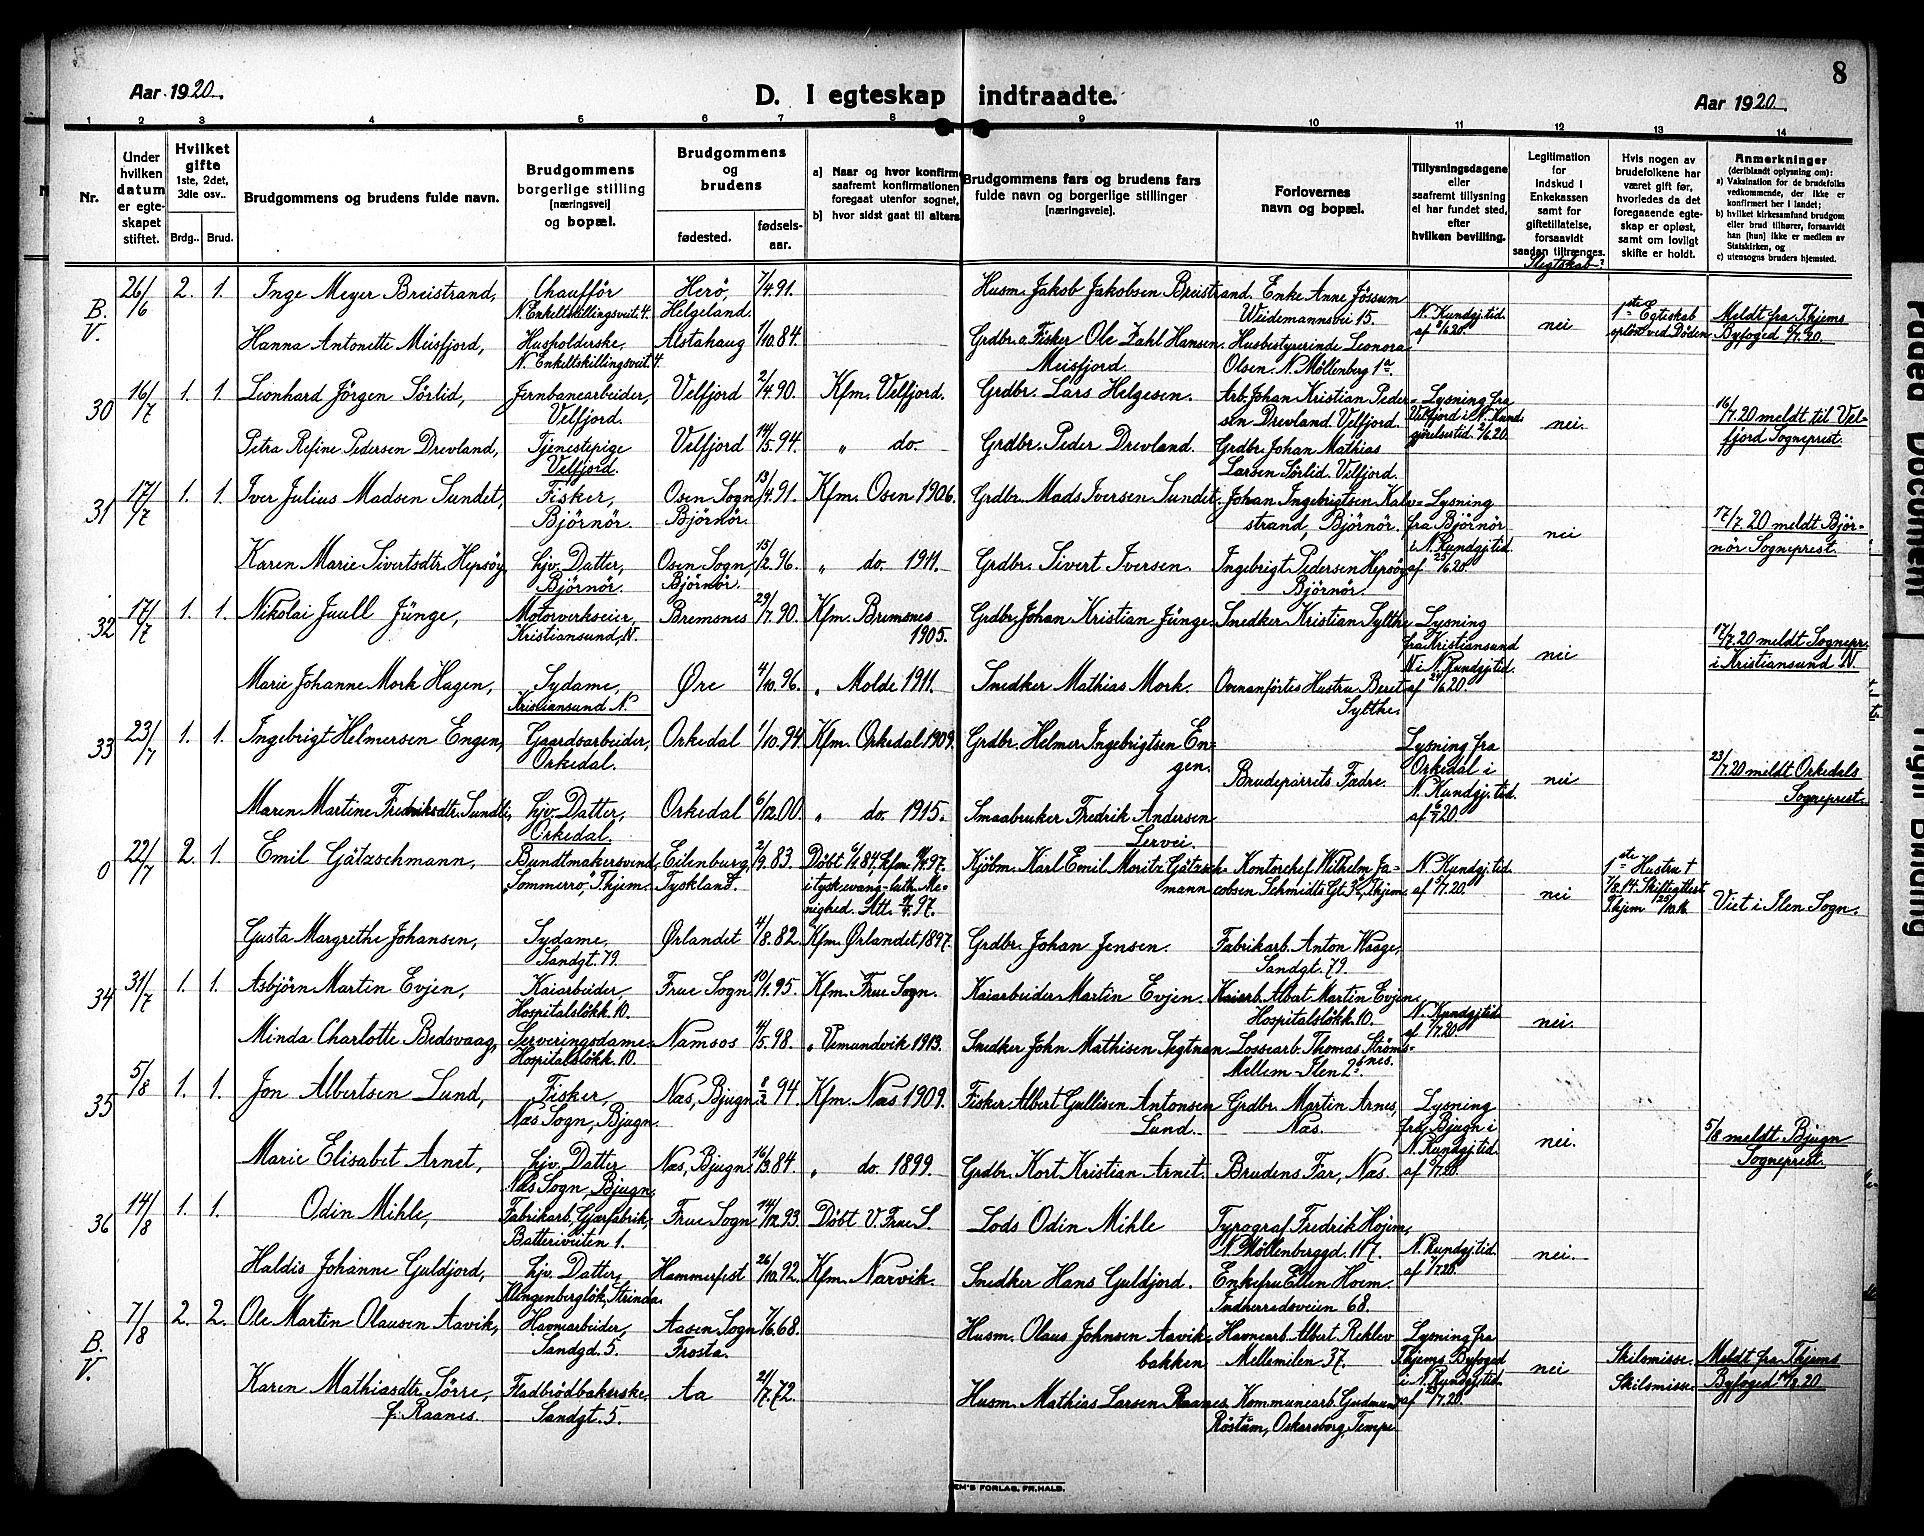 8
Aar 1920.
D. I egteskap indtraadte.
Aar 1920
1 2 3 4 5 6 7 8 9 10 11 12 13 14
Nr.
Under hvilken datum er egteskapet stiftet.
Hvilket gifte
1ste, 2det, 3die osv..
Brdg..
Brud.
Brudgommens og brudens fulde navn.
Brudgommens borgerlige stilling [næringsvei] og bopæl.
Brudgommens og brudens
fødested.
fødsels-aar.
a) Naar og hvor konfirm
saafremt konfirmationen
foregaat utenfor sognet,
b) hvor sidst gaat til alters
Brudgommens fars og brudens fars
fulde navn og borgerlige stillinger
[næringsveie].
Forlovernes
navn og bopæl.
Tillysningsdagene
eller
saafremt tillysning
ei har fundet sted,
efter
hvilken bevilling.
Legitimation
for
Indskud i
Enkekassen
samt for
giftetillatelse,
forsaavidt
saadan tiltrænges.
Slegtskab?
Hvis nogen av
brudefolkene har
været gift før,
hvorledes da det
foregaaende egte-
skap er opløst,
samt om lovligt
skifte er holdt.
Anmerkninger
(deriblandt oplysning om):
a) Vaksination for de brudefolks
vedkommende, der ikke er
konfirmert her i landet;
b) hvilket kirkesamfund brudgom
eller brud tilhører, forsaavidt
han (hun) ikke er medlem av
Statskirken, og
c) utensogns bruders hjemsted.
B. V. 26/6 2. 1. Inge Meyer Breistrand, Chaufför N. Enkeltskillingsveit. 4. Herö, Helgeland. 7/4.91. Husm. Jakob Jakobsen Breistrand. Enke Anne Jössum Weidemannsvei 15. N. Kundgj. tid. nei 1ste Egteskab opløst ved Döden Meldt fra Thjems Byfoged
Hanna Antonette Meisfjord, Husholderske, N. Enkeltskillingsveit. 4. Alstahaug 1/10.84. Grdbr. o. Fisker Ole Zahl Hansen Meisfjord. Husbestyrerinde Leonora Olsen. N. Möllenberg 1a.
30 16/7 1. 1. Leonhard Jörgen Sörlid, Jernbanearbeider, Velfjord. Velfjord 2/4.90. Kfm. Velfjord. Grdbr. Lars Helgesen. Arb. Johan Kristian Pedersen Drevland. Velfjord. Lysning fra Velfjord i N. Kundgjörelsestid. 2/6.20. nei. 16/7.20 meldt til Velfjord Sogneprest.
Petra Refine Pedersen Drevland, Tjenestepige Velfjord. Velfjord 14/5.94. " do. Grdbr. Peder Drevland. Grdbr. Johan Mathias Larsen Sörlid. Velfjord.
31 17/7 1. 1. Iver Julius Madsen Sundet, Fisker, Björnör. Osen Sogn Björnör. 13/4.91. Kfm. Osen 1906. Grdbr. Mads Iversen Sundet. Johan Ingebrigtsen Kalvstrand, Björnör. Lysning fra Björnör i N. Kundgj. tid. af 25/6.20. nei 17/7.20 meldt Björnör Sogneprest.
Karen Marie Sivertsdtr. Hepsøy, hjv. Datter, Björnör. Osen Sogn, Björnör. 15/2.96. " do. 1911. Grdbr. Sivert Iversen. Ingebrigt Pedersen Hepsöy Björnör.
32 17/7 1. 1. Nikolai Juull Jünge, Motorverkseier, Kristiansund, N. Bremsnes 29/7.90. Kfm. Bremsnes 1905. Grdbr. Johan Kristian Jünge. Snedker Kristian Sylthe Lysning fra Kristiansund N. i N. Kundgj. tid. nei 17/7.20 meldt Sognepr. i Kristiansund N.
Marie Johanne Mork Hagen, Sydame, Kristiansund N. Øre 4/10.96. " Molde 1911. Snedker Mathias Mork. Ovenanförtes Hustru Beret Sylthe.
33 23/7 1. 1. Ingebrigt Helmersen Engen, Gaardsarbeider, Orkedal. Orkedal 1/10.94. Kfm. Orkedal 1909. Grdbr. Helmer Ingebrigtsen Engen. Brudeparrets Fædre. Lysning fra Orkedal i N. Kundgj. tid. af 6/7.20. nei 23/7.20 meldt Orkedals Sogneprest.
Maren Martine Fredriksdtr. Sundli, hjv. Datter, Orkedal. Orkedal 6/12.00. " do. 1915. Smaabruker Fredrik Andersen
0 22/7 2. 1. Emil Götzschmann, Bundtmakersvend, "Sommerro", Thjem. Eilenburg, Tyskland. 2/9.83. Döbt 84, Kfm. 97. i tysk evang-luth. Menighed. Alt. 97. Kjöbm. Karl Emil Moritz Götzschmann Kontorchef Wilhelm Jacobsen Schmidts Gt. Thjem. N. Kundgj. tid. af 5/7.20. nei 1ste Hustru † 7/8.14. Skifteattest Thjem 25/10.16. Viet i Ilen Sogn.
Gusta Margrethe Johansen, Sydame, Sandgt. 79. Ørlandet 4/8.82. Kfm. Ørlandet 1897. Grdbr. Johan Jensen. Fabrikarb. Anton Waage, Sandgt. 79.
34 31/7 1. 1. Asbjörn Martin Evjen, Kaiarbeider Hospitalslökk. 10. Frue Sogn 10/1.95. Kfm. Frue Sogn. Kaiarbeider Martin Evjen. Kaiarb. Albert Martin Evjen, Hospitalslökk. 10. N. Kundgj. tid. nei.
Minda Charlotte Bedsvaag, Serveringsdame. Hospitalslökk. 10. Namsos 4/5.98. " Vemundvik 1913. Snedker John Mathisen Lossearb. Thomas Strömsnes. Mellem-Ilen
35 5/8 1. 1. Jon Albertsen Lund, Fisker, Næs Sogn, Bjugn. Næs, Bjugn. 8/2 94 Kfm. Næs 1909. Fisker Albert Gullisen Antonsen Lund. Grdbr. Martin Arnes, Næs. Lysning fra Bjugn i N. Kundgj. tid. nei. 5/8 meldt Bjugn Sogneprest.
Marie Elisabet Arnet, hjv. Datter Næs Sogn, Bjugn. Næs, Bjugn. 16/3.84 " do. 1899. Grdbr. Kort Kristian Arnet. Brudens Far, Næs.
36 14/8 1. 1. Odin Mihle, Fabrikarb. Gjærfabrik, Batteriveiten 1. Frue Sogn 14/12.93. Döbt V. Frue S. Lods Odin Mihle Typograf Fredrik Hojem, N. Möllenberggd. 117. N. Kundgj. tid. af 7/7.20. nei.
Haldis Johanne Guldjord, hjv. Datter, Klingenberglök, Strinda. Hammerfest 26/10.92. Kfm. Narvik. Snedker Hans Guldjord. Enkefru Ellen Hoem. Indherredsveien 68.
B. V. 7/8 2. 2. Ole Martin Olausen Aavik, Havnearbeider, Sandgd. 5. Aasen Sogn Frosta. 7/6.68. Husm. Olaus Johnsen Aavikbakken Havnearb. Albert Reklev Mellemilen 37. Lysning fra Thjems Byfoged i N. Kundgj. tid. nei Skilsmisse. Skilsmisse. Meldt fra Thjems Byfoged
Karen Mathiasdtr. Sörre, f. Raanes. Fladbrödbakerske, Sandgt. 5. Aa 21/7.72. Husm. Mathias Larsen Raanes. Kommunearb. Gudmund Röstum, Oskarsborg, Tempe
EM'S FORLAG, FR.HALD.